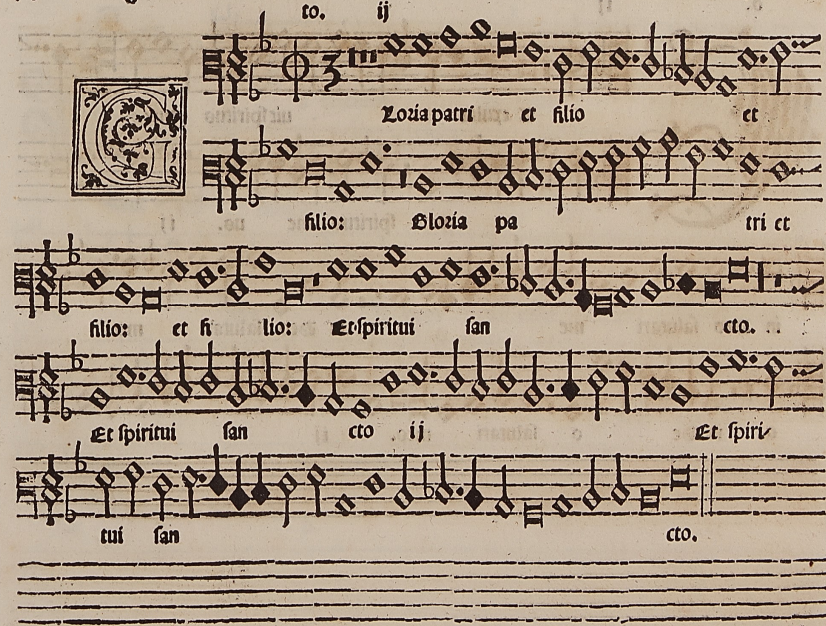 to. ij
G Loria patri et filio et
filio: Gloria pa tri et
filio: et fi lio: Et spiritui san cto.
Et spiritui san cto ij Et spiri-
tui san cto.